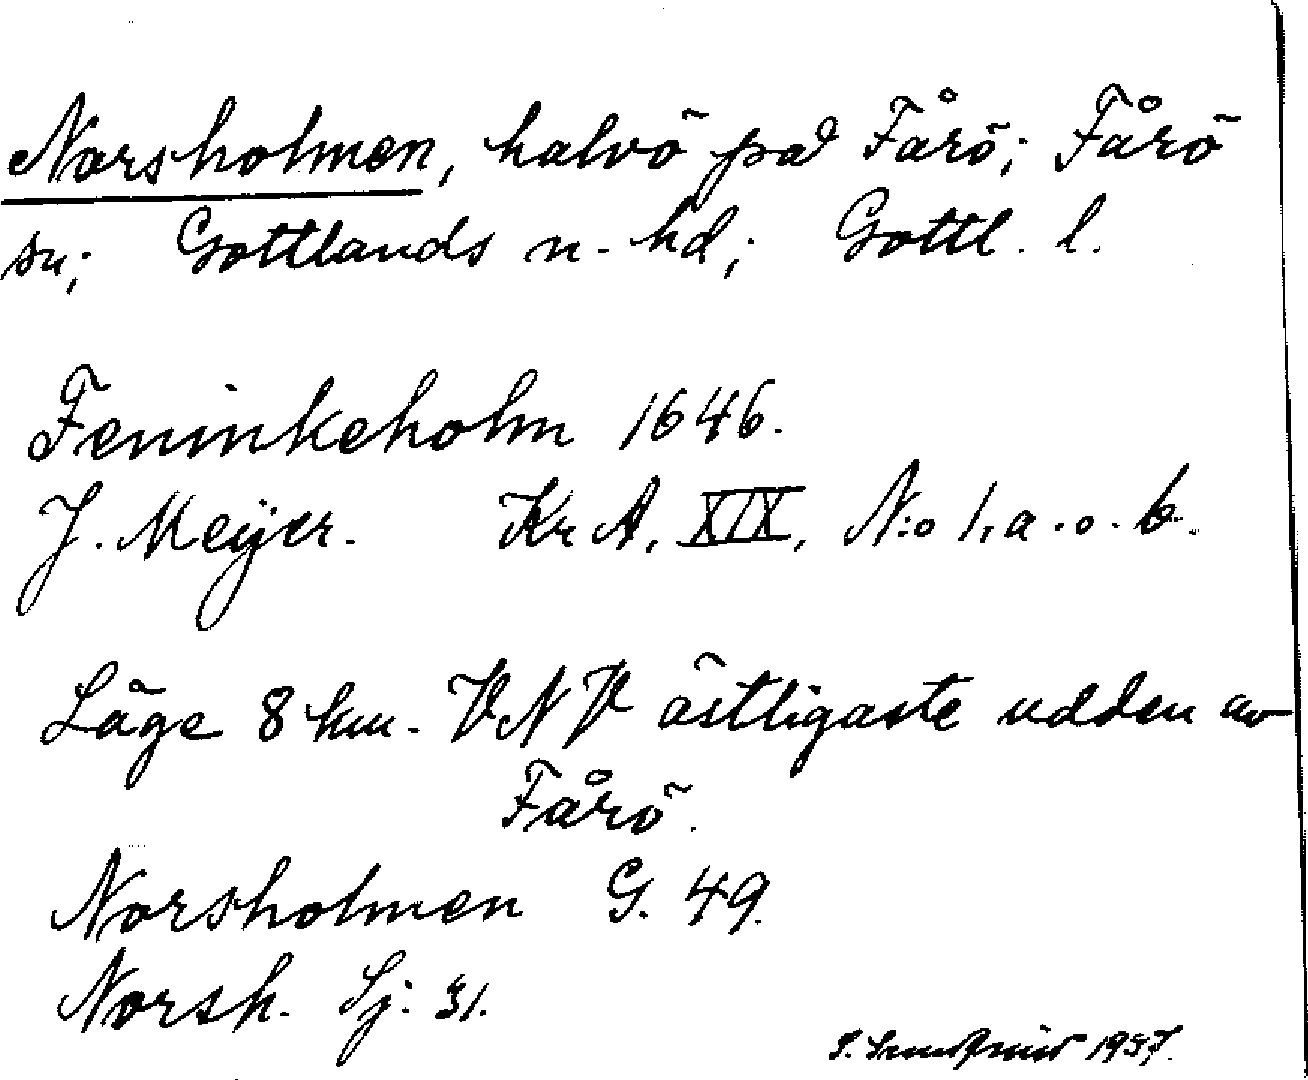 Norsholmen, halvö på Fårö; Fårö
sn; Gottlands n. hd; Gottl. l.
Feninkeholm 1646.
J. Meÿer. Kr A, XIX, N:o 1, a.o.b.
Läge 8 km. VNV östligaste udden av
Fårö.
Norsholmen G. 49.
Norsh. Sj: 31.
1937.